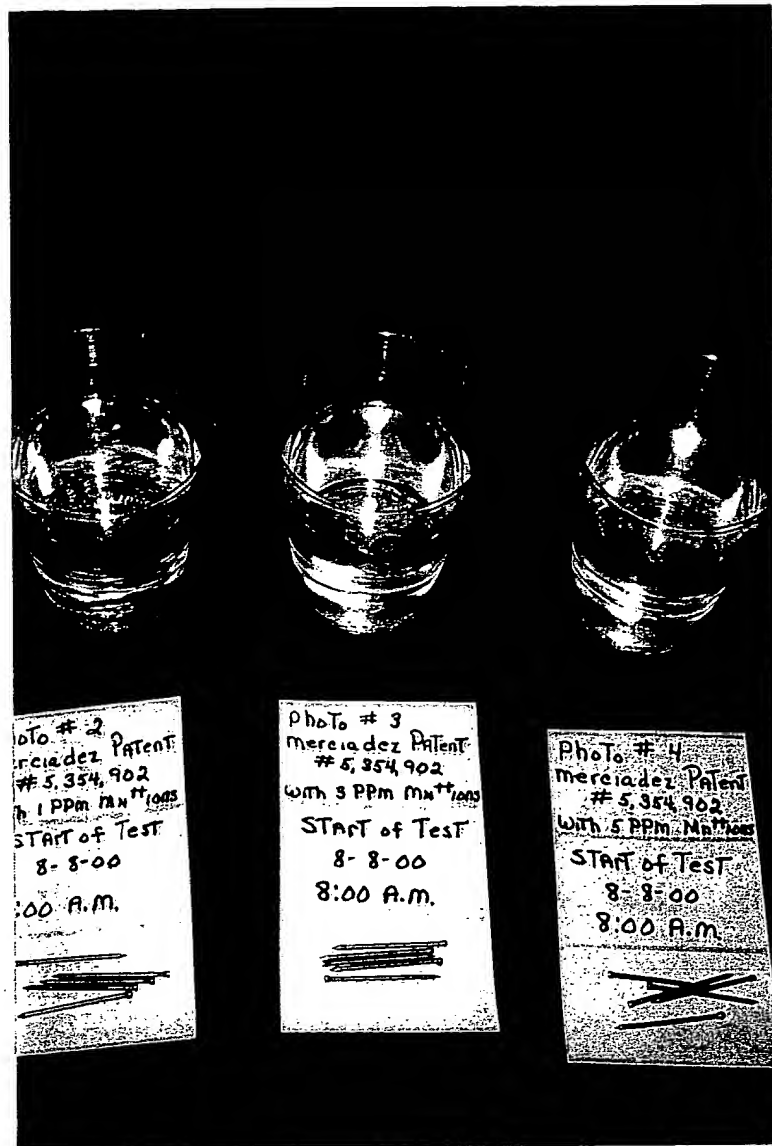 oTo # 2
erciadez PATenT
# 5,354,902
Th 1 PPm Mn++ ions
START of TesT
8-8-00
:00 A.M.
PhoTo # 3
merciadez PATenT
# 5,354,902
wiTh 3 PPm Mn++ ions
START of TesT
8-8-00
8:00 A.M.
PhoTo # 4
merciadez PATenT
# 5,354,902
wiTh 5 PPm Mn++ ions
START of TesT
8-8-00
8:00 A.M